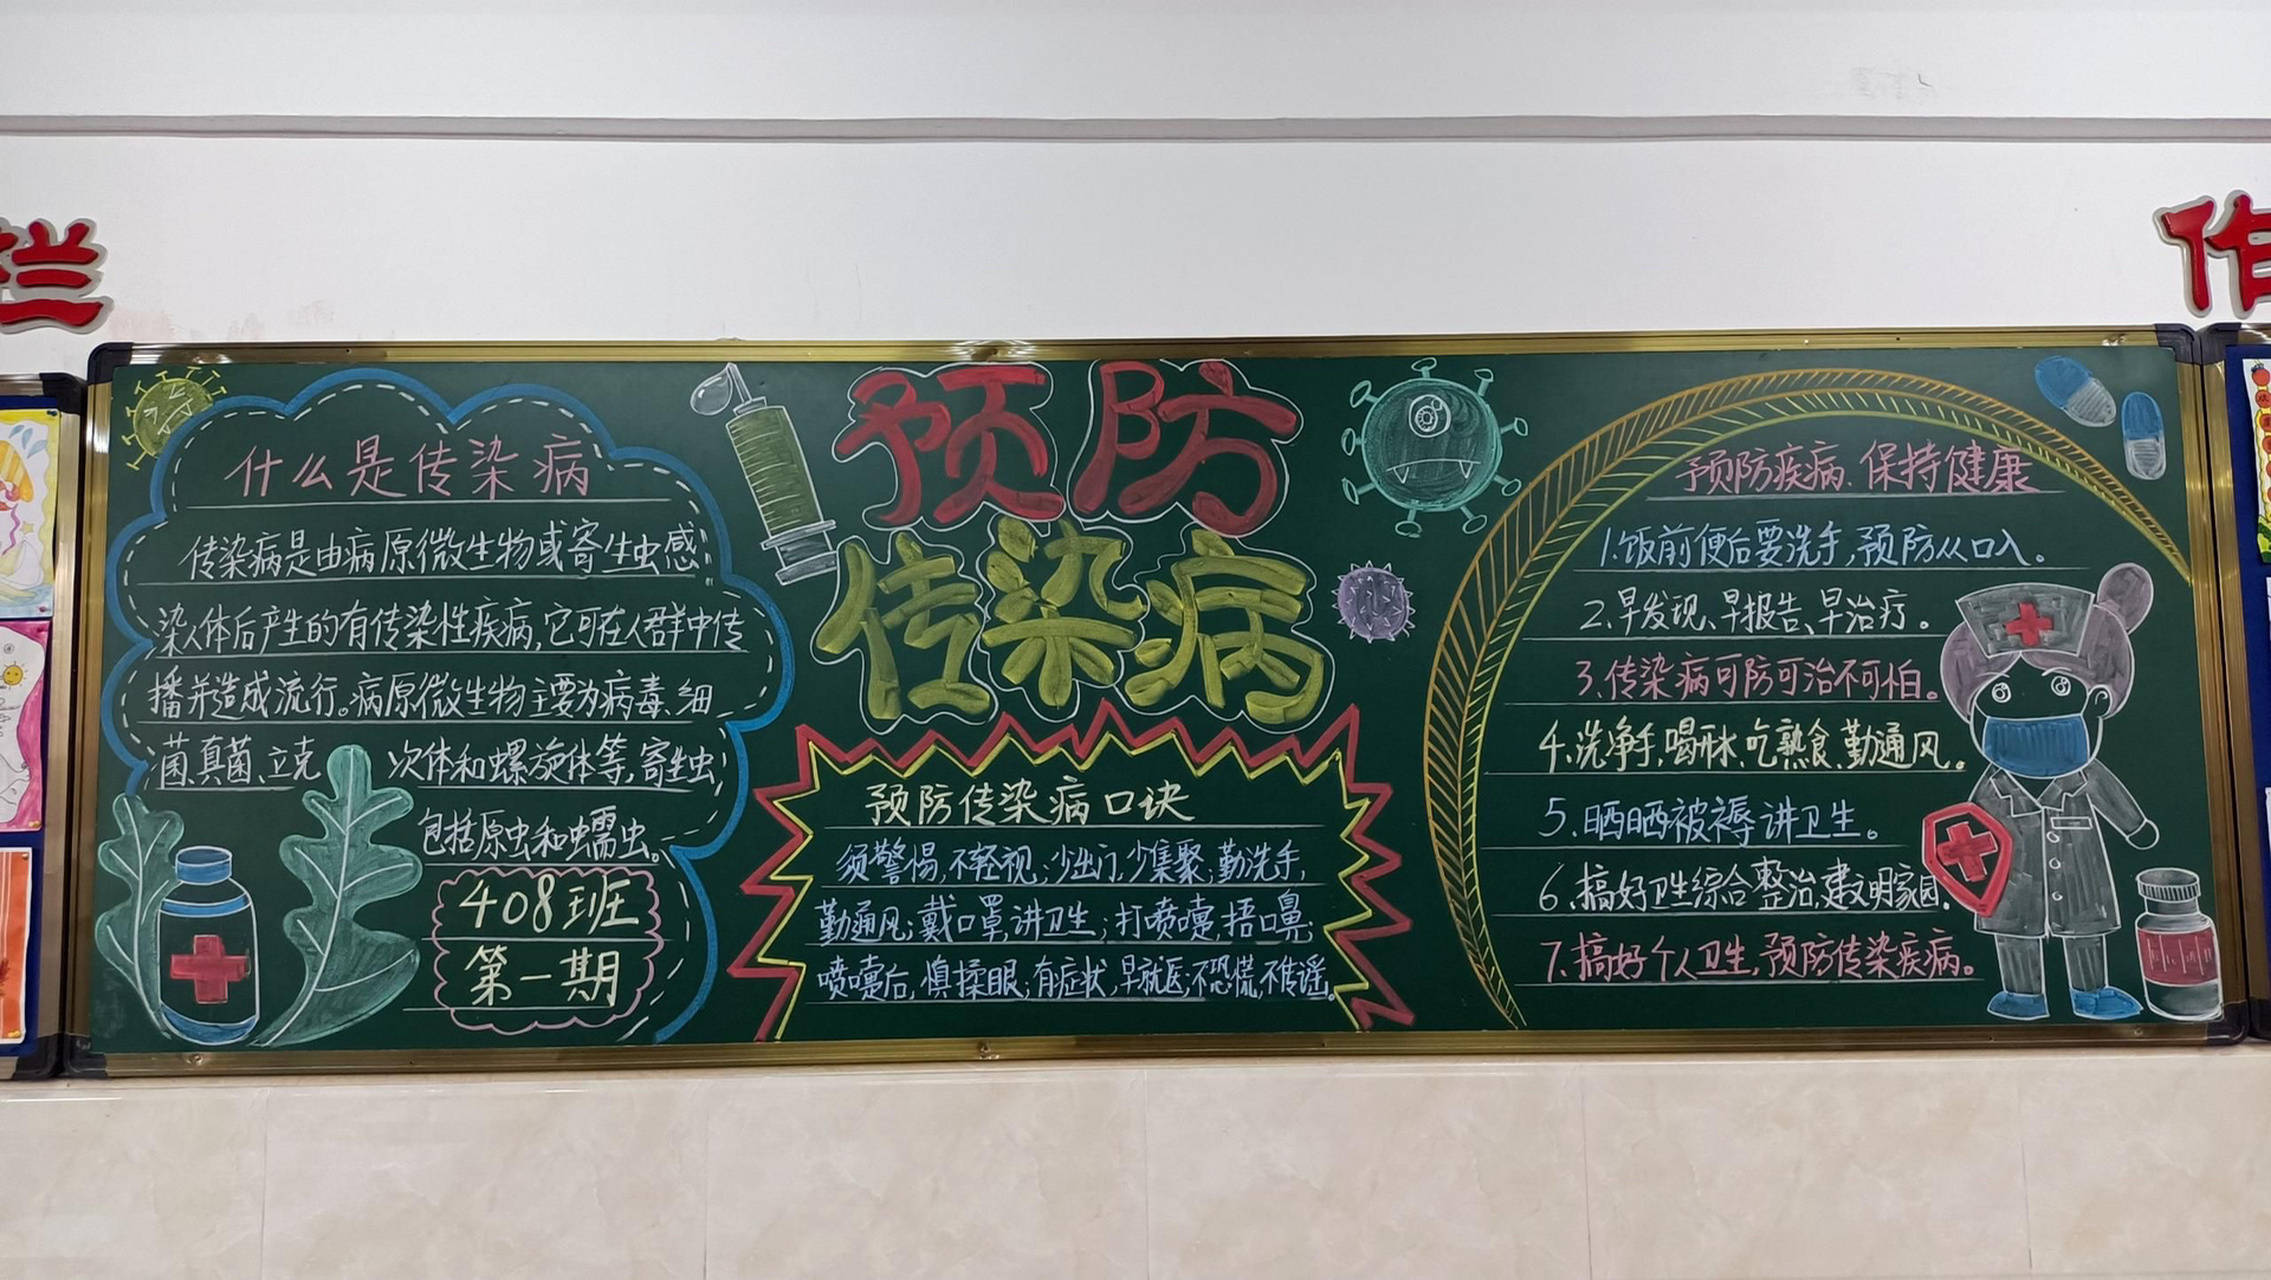 栏
什么是传染病
传染病是由病原微生物或寄生虫感
染人体后产生的有传染性疾病,它可在人群中传
播并造成流行。病原微生物主要为病毒、细
菌、真菌、立克 次体和螺旋体等,寄生虫
包括原虫和蠕虫。
408班
第一期
预防
传染病
预防传染病口诀
须警惕,不轻视;少出门,少集聚;勤洗手,
勤通风;戴口罩,讲卫生;打喷嚏,捂口鼻;
喷嚏后,慎揉眼;有症状,早就医;不恐慌,不传谣。
预防疾病、保持健康
1.饭前便后要洗手,预防从口入。
2.早发现、早报告、早治疗。
3.传染病可防可治不可怕。
4.洗净手,喝开水,吃熟食、勤通风。
5.晒晒被褥讲卫生。
6.搞好卫生综合整治,建文明家园。
7.搞好个人卫生,预防传染疾病。
作